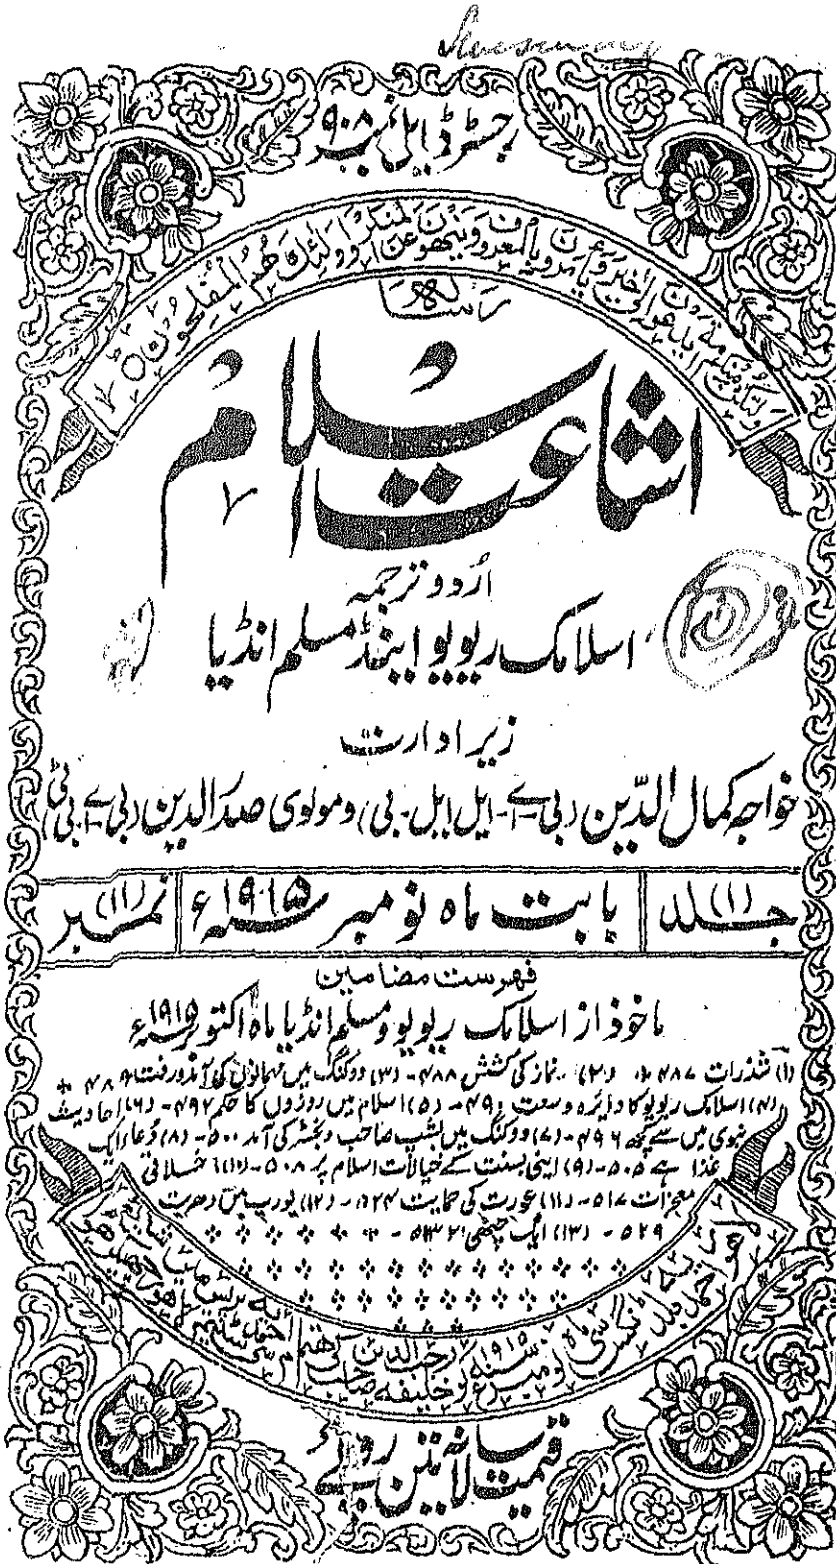 رجسٹرڈ ایل نمبر ۹۰۸
ولتکن منکم امۃ یدعون الی الخیر ویامرون بالمعروف وینھون عن المنکر واولئک ھم المفلحون
رسالہ
اشاعت اسلام
اُردو ترجمہ
اسلامک ریویو اینڈ مسلم انڈیا
زیر ادارت
خواجہ کمال الدّین (بی-اے-ایل ایل-بی) و مولوی صدر الدین (بی-اے-بی ٹی)
جلد (۱) بابت ماہ نومبر سنہ ۱۹۱۵ء نمبر (۱۱)
فہرست مضامین
ماخوذ از اسلامک ریویو و مسلم انڈیا ماہ اکتوبر سنہ ۱۹۱۵ء
(۱) شذرات ۴۸۷ (۲) نماز کی کشش ۴۸۸ - (۳) ووکنگ میں مہمانوں کی آمد و رفت ۴۸۹
(۴) اسلامک ریویو کا دایرہ وسعت ۴۹۰ - (۵) اسلام میں روزوں کا حکم ۴۹۲ - (۶) احادیث
نبوی میں سے کچھ ۴۹۶ - (۷) ووکنگ میں بشپ صاحب ونچسٹر کی آمد ۵۰۰ - (۸) دُعا ایک
غذا ہے ۵۰۵ - (۹) اینی بسنت کے خیالات اسلام پر ۵۰۸ - (۱۰) اخلاقی
معجزات ۵۱۷ - (۱۱) عورت کی حمایت ۵۲۴ - (۱۲) یورپ میں وحدت
۵۲۹ - (۱۳) ایک چٹھی ۵۳۲ -
نومبر سنہ ۱۹۱۵ء کو خلیفہ رجب الدین صاحب
قیمت سالانہ تین روپے